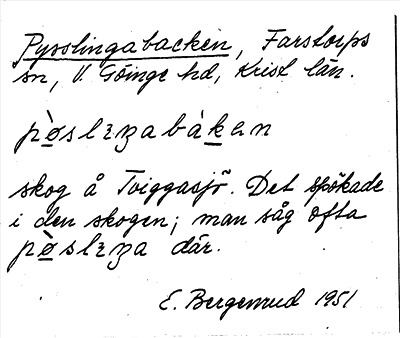 Pysslingabacken, Farstorps
sn, V. Göinge hd, Krist län.
pø̀slɩŋabàkan
skog å Tviggasjö. Det spökade
i den skogen; man såg ofta
pø̀slɩŋa där.
E. Bergemud 1951